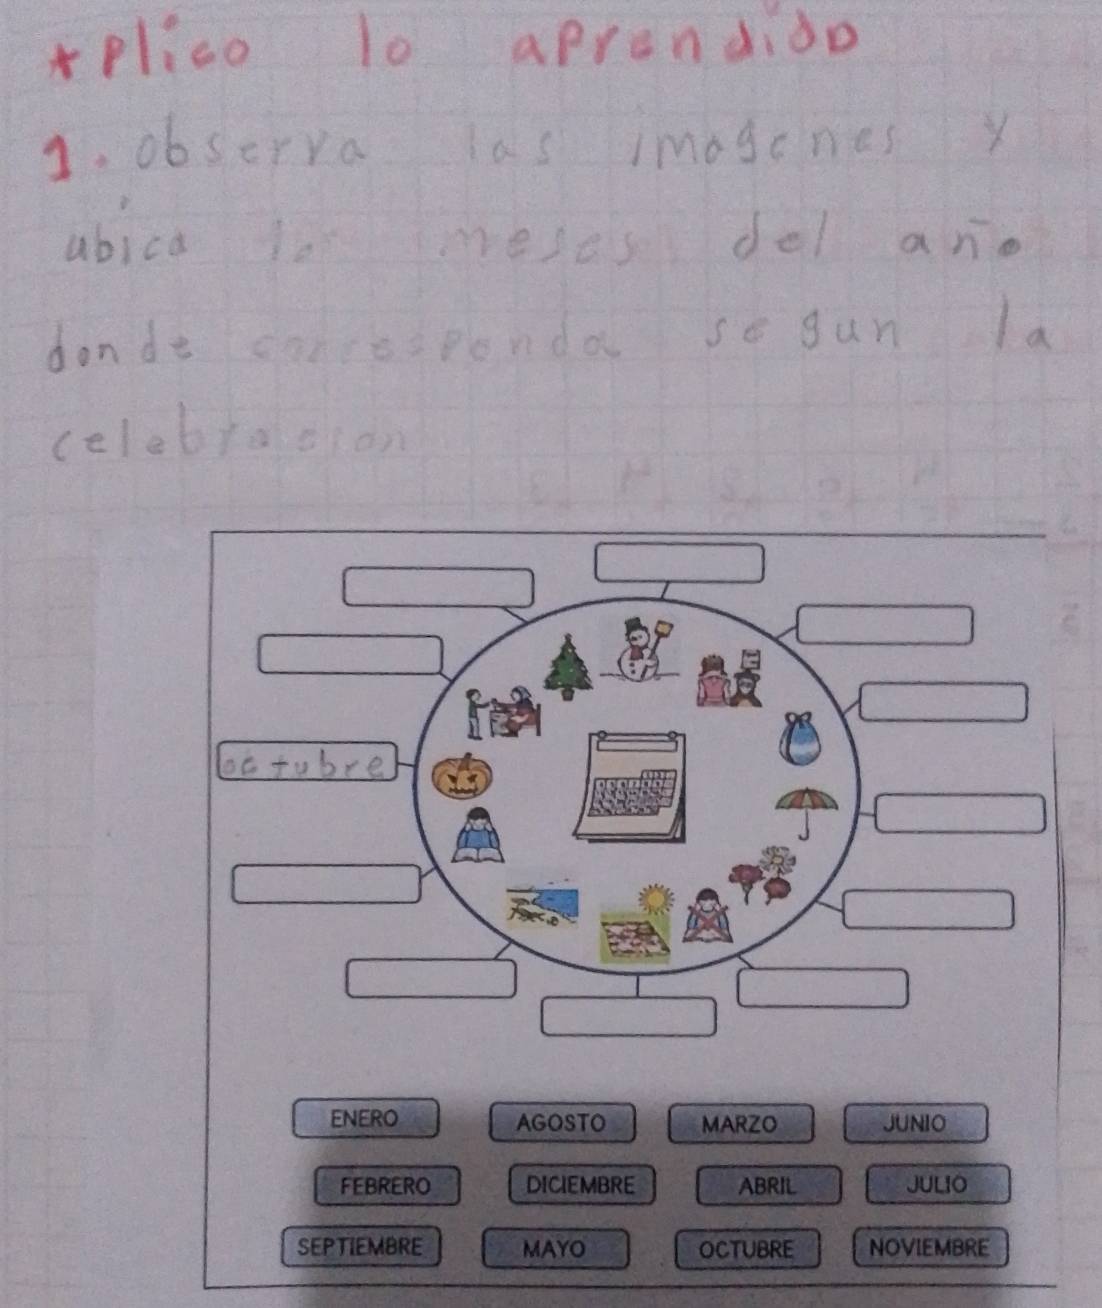 aplico lo aprendido
1. observa las imagenes y
ubica los meses del año
donde corresponda segun la
celebracion
octubre
ENERO AGOSTO MARZO JUNIO
FEBRERO DICIEMBRE ABRIL JULIO
SEPTIEMBRE MAYO OCTUBRE NOVIEMBRE